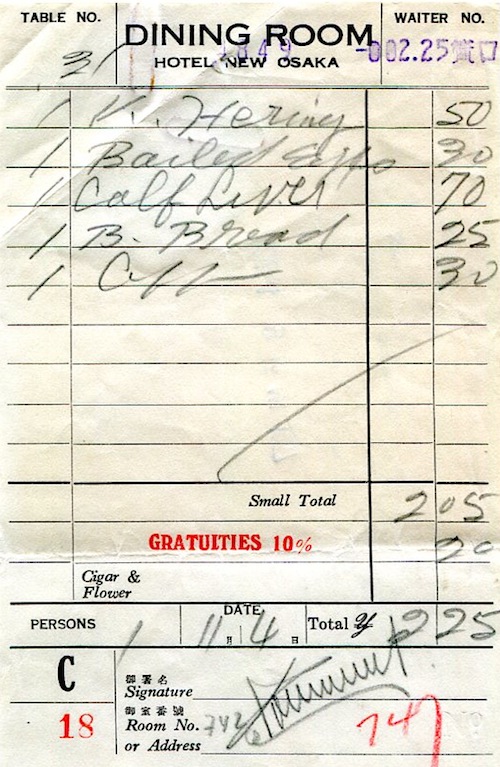 TABLE NO.
DINING ROOM
WAITER NO.
HOTEL NEW OSAKA
-002.25
1 K. Hering 50
1 Bailed Eggs 30
1 Calf Liver 70
1 B. Bread 25
1 30
Small Total 205
GRATUITIES 10% 20
Cigar &
Flower
PERSONS 1 DATE 11月 4日 Total ¥ 225
C
御署名
Signature
18
御室番號
Room No. 742
or Address
747